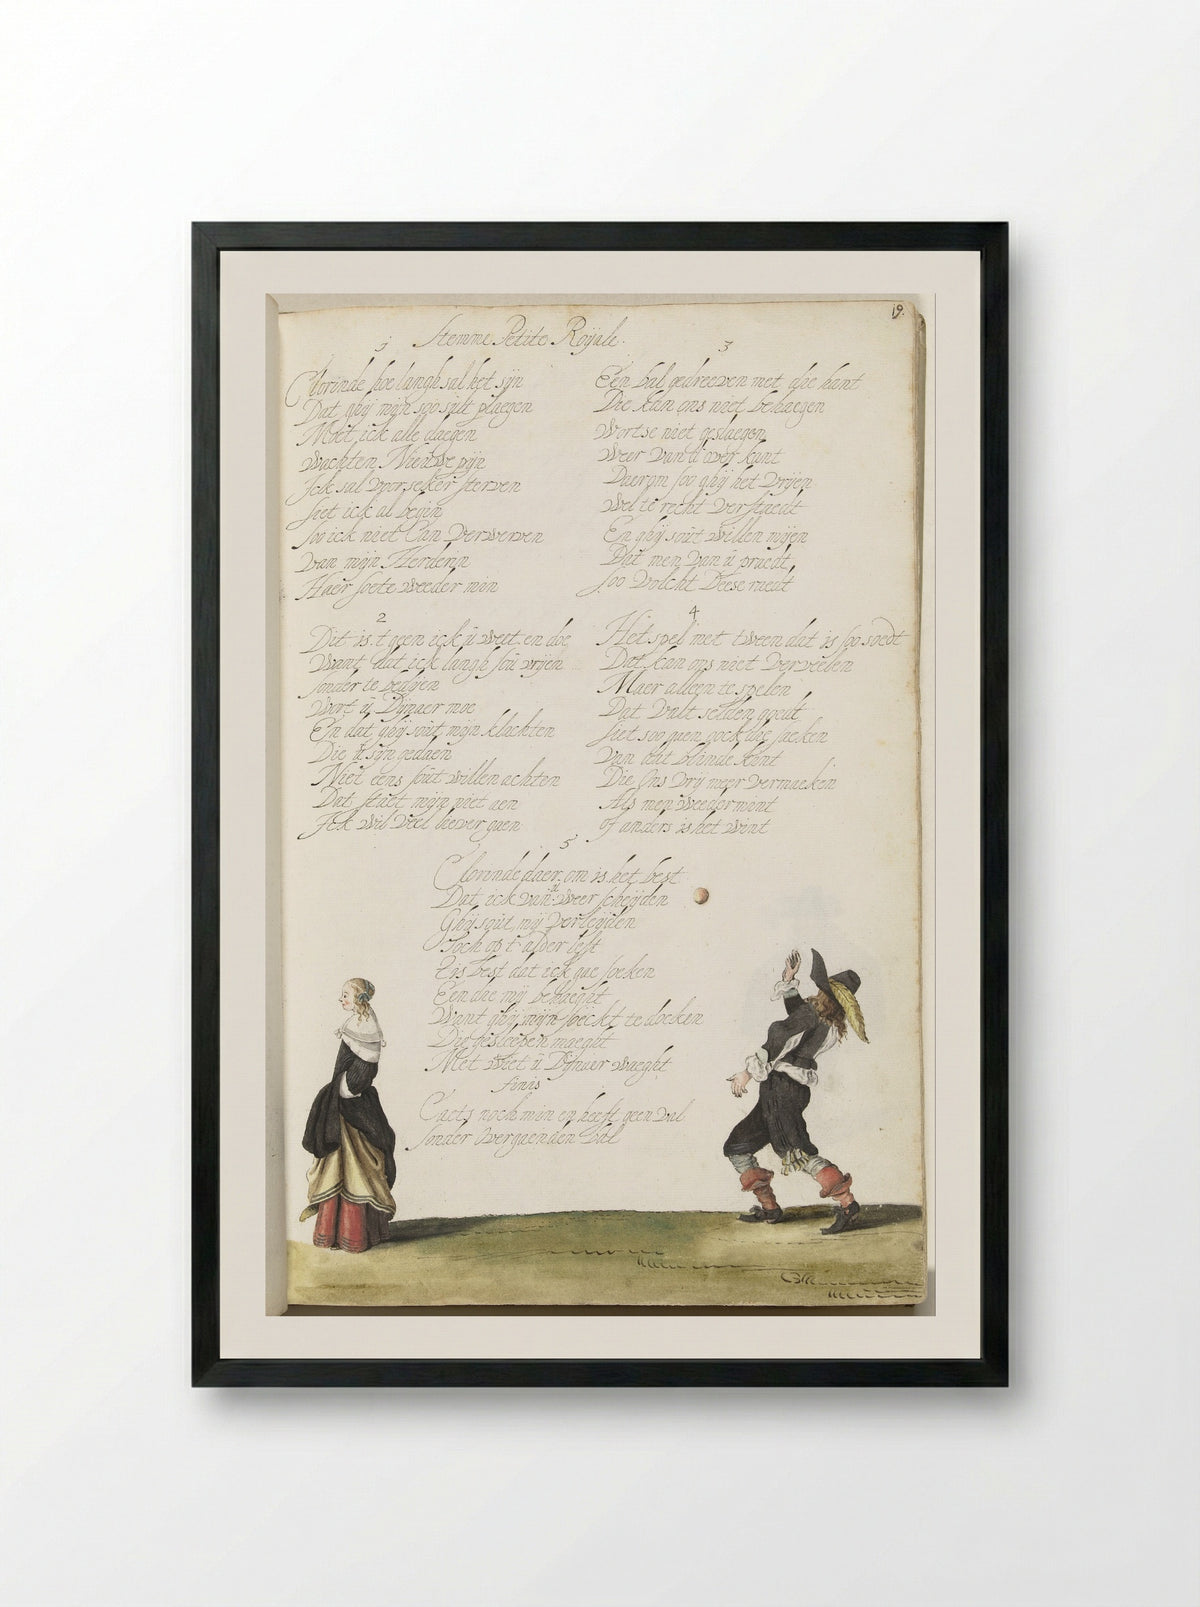 19.
Stemme Petite Royale.
1
Clorinde hoe langh sal het sijn
Dat ghij mijn soo sult plaegen
Moet ick alle daegen
wachten Nieuwe pijn
Ick sal voorseker sterven
soet ick al begin
soo ick niet Can verwerven
van mijn Herderin
Haer soete weeder min
2
Dit is 't geen ick ü weet en doe
Want dat ick langh soü vrijen
sonder te bedijen
Wort ü Dijnaer moe
En dat ghij soüt mijn klachten
Die ü sijn gedaen
Niet eens soüt willen achten
Dat staet mijn niet aen
Ick wil veel liever gaen
3
Een bal gedreeven met die hant
Die kan ons niet behaegen
Wortse niet geslaegen
Weer van d'over kant
Daerom soo ghij het vrijen
Wel te recht verstaedt
En ghij soüt willen mijen
Dat men van ü praedt
soo volcht deese raedt
4
Het spel met tween dat is soo soedt
Dat kan ons niet verveelen
Maer alleen te speelen
Dat valt selden goedt
siet soo gaen oock die saeken
van het blinde kint
Die ons vrij meer vermaeken
Als men weedermint
of anders is het wint
5
Clorinde daer om is het best
Dat ick van ü weer scheijden
Ghij soüt mij verleijden
Toch op 't alder lest
Tis best dat ick gae soeken
Een die mij behaeght
Want ghij mijn soeckt te doeken
Die gesleepen maeght
Met wiet ü Dijnaer waeght
finis
Caets noch min en heeft geen val
sonder overgaenden bal